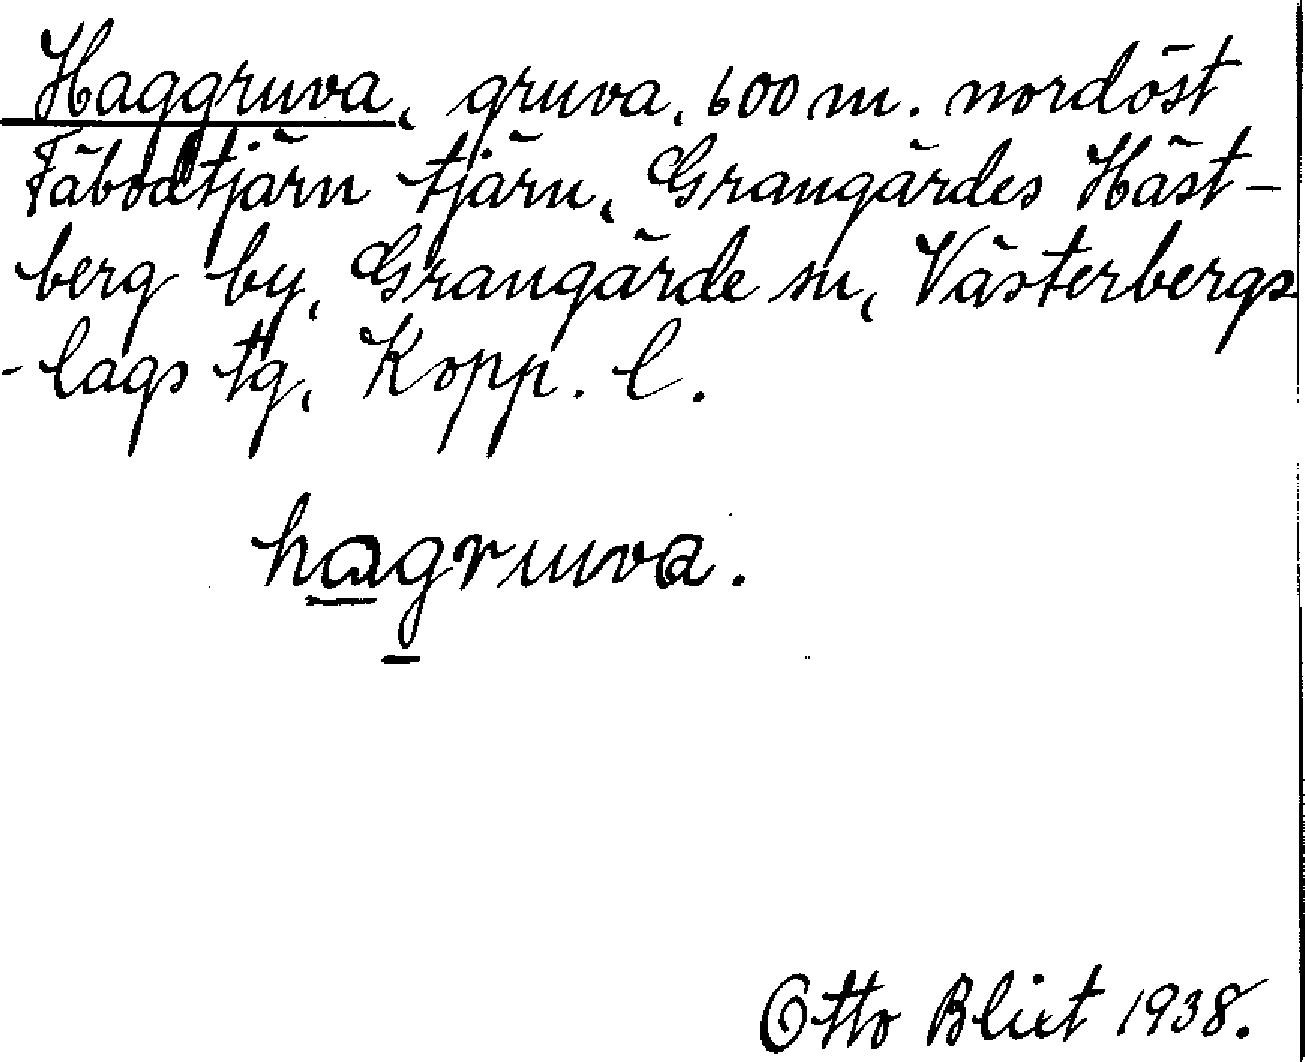 Haggruva, gruva, 600 m. nordöst
Fäbodtjärn tjärn, Grangärdes Häst-
berg by, Grangärde sn, Västerbergs
-lags tg, Kopp. l.
hagruva.
Otto Blixt 1938.